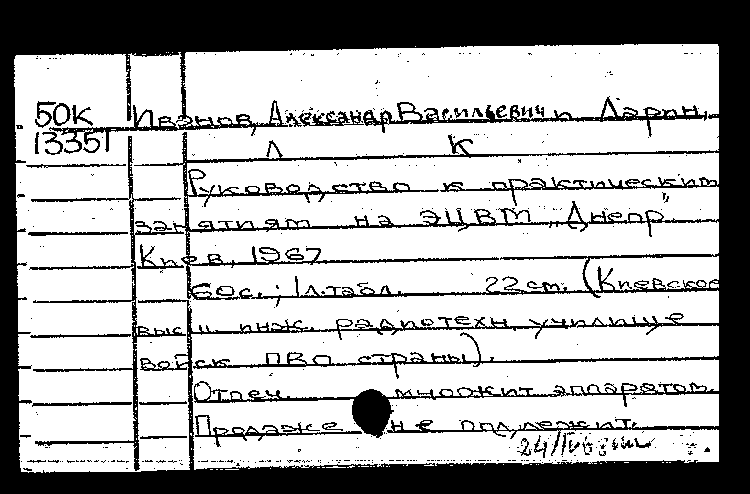 50К Иванов, Александр Васильевич и Ларин,
13351 Л К
Руководство к практическим
занятиям на ЭЦВМ „Днепр"
Киев, 1967
60с.; 1л.табл. 22 cm. (Киевское
высш. инж. радиотехн. училище
войск ПВО страны).
Отпеч. множит. аппаратом.
Продаже не подлежит.